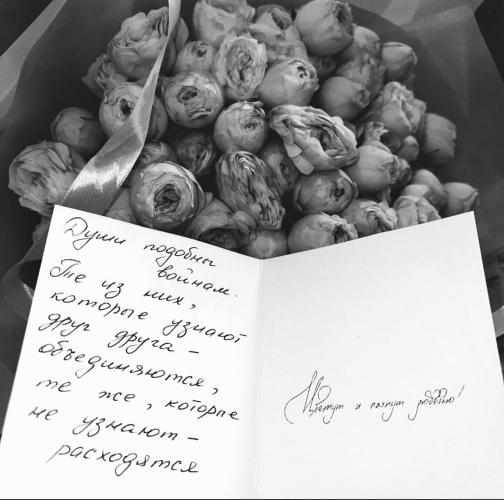 Души подобны
войнам.
Те из них,
которые узнают
друг друга –
объединяются,
те же, которые
не узнают –
расходятся
Цветут и пахнут любовью!